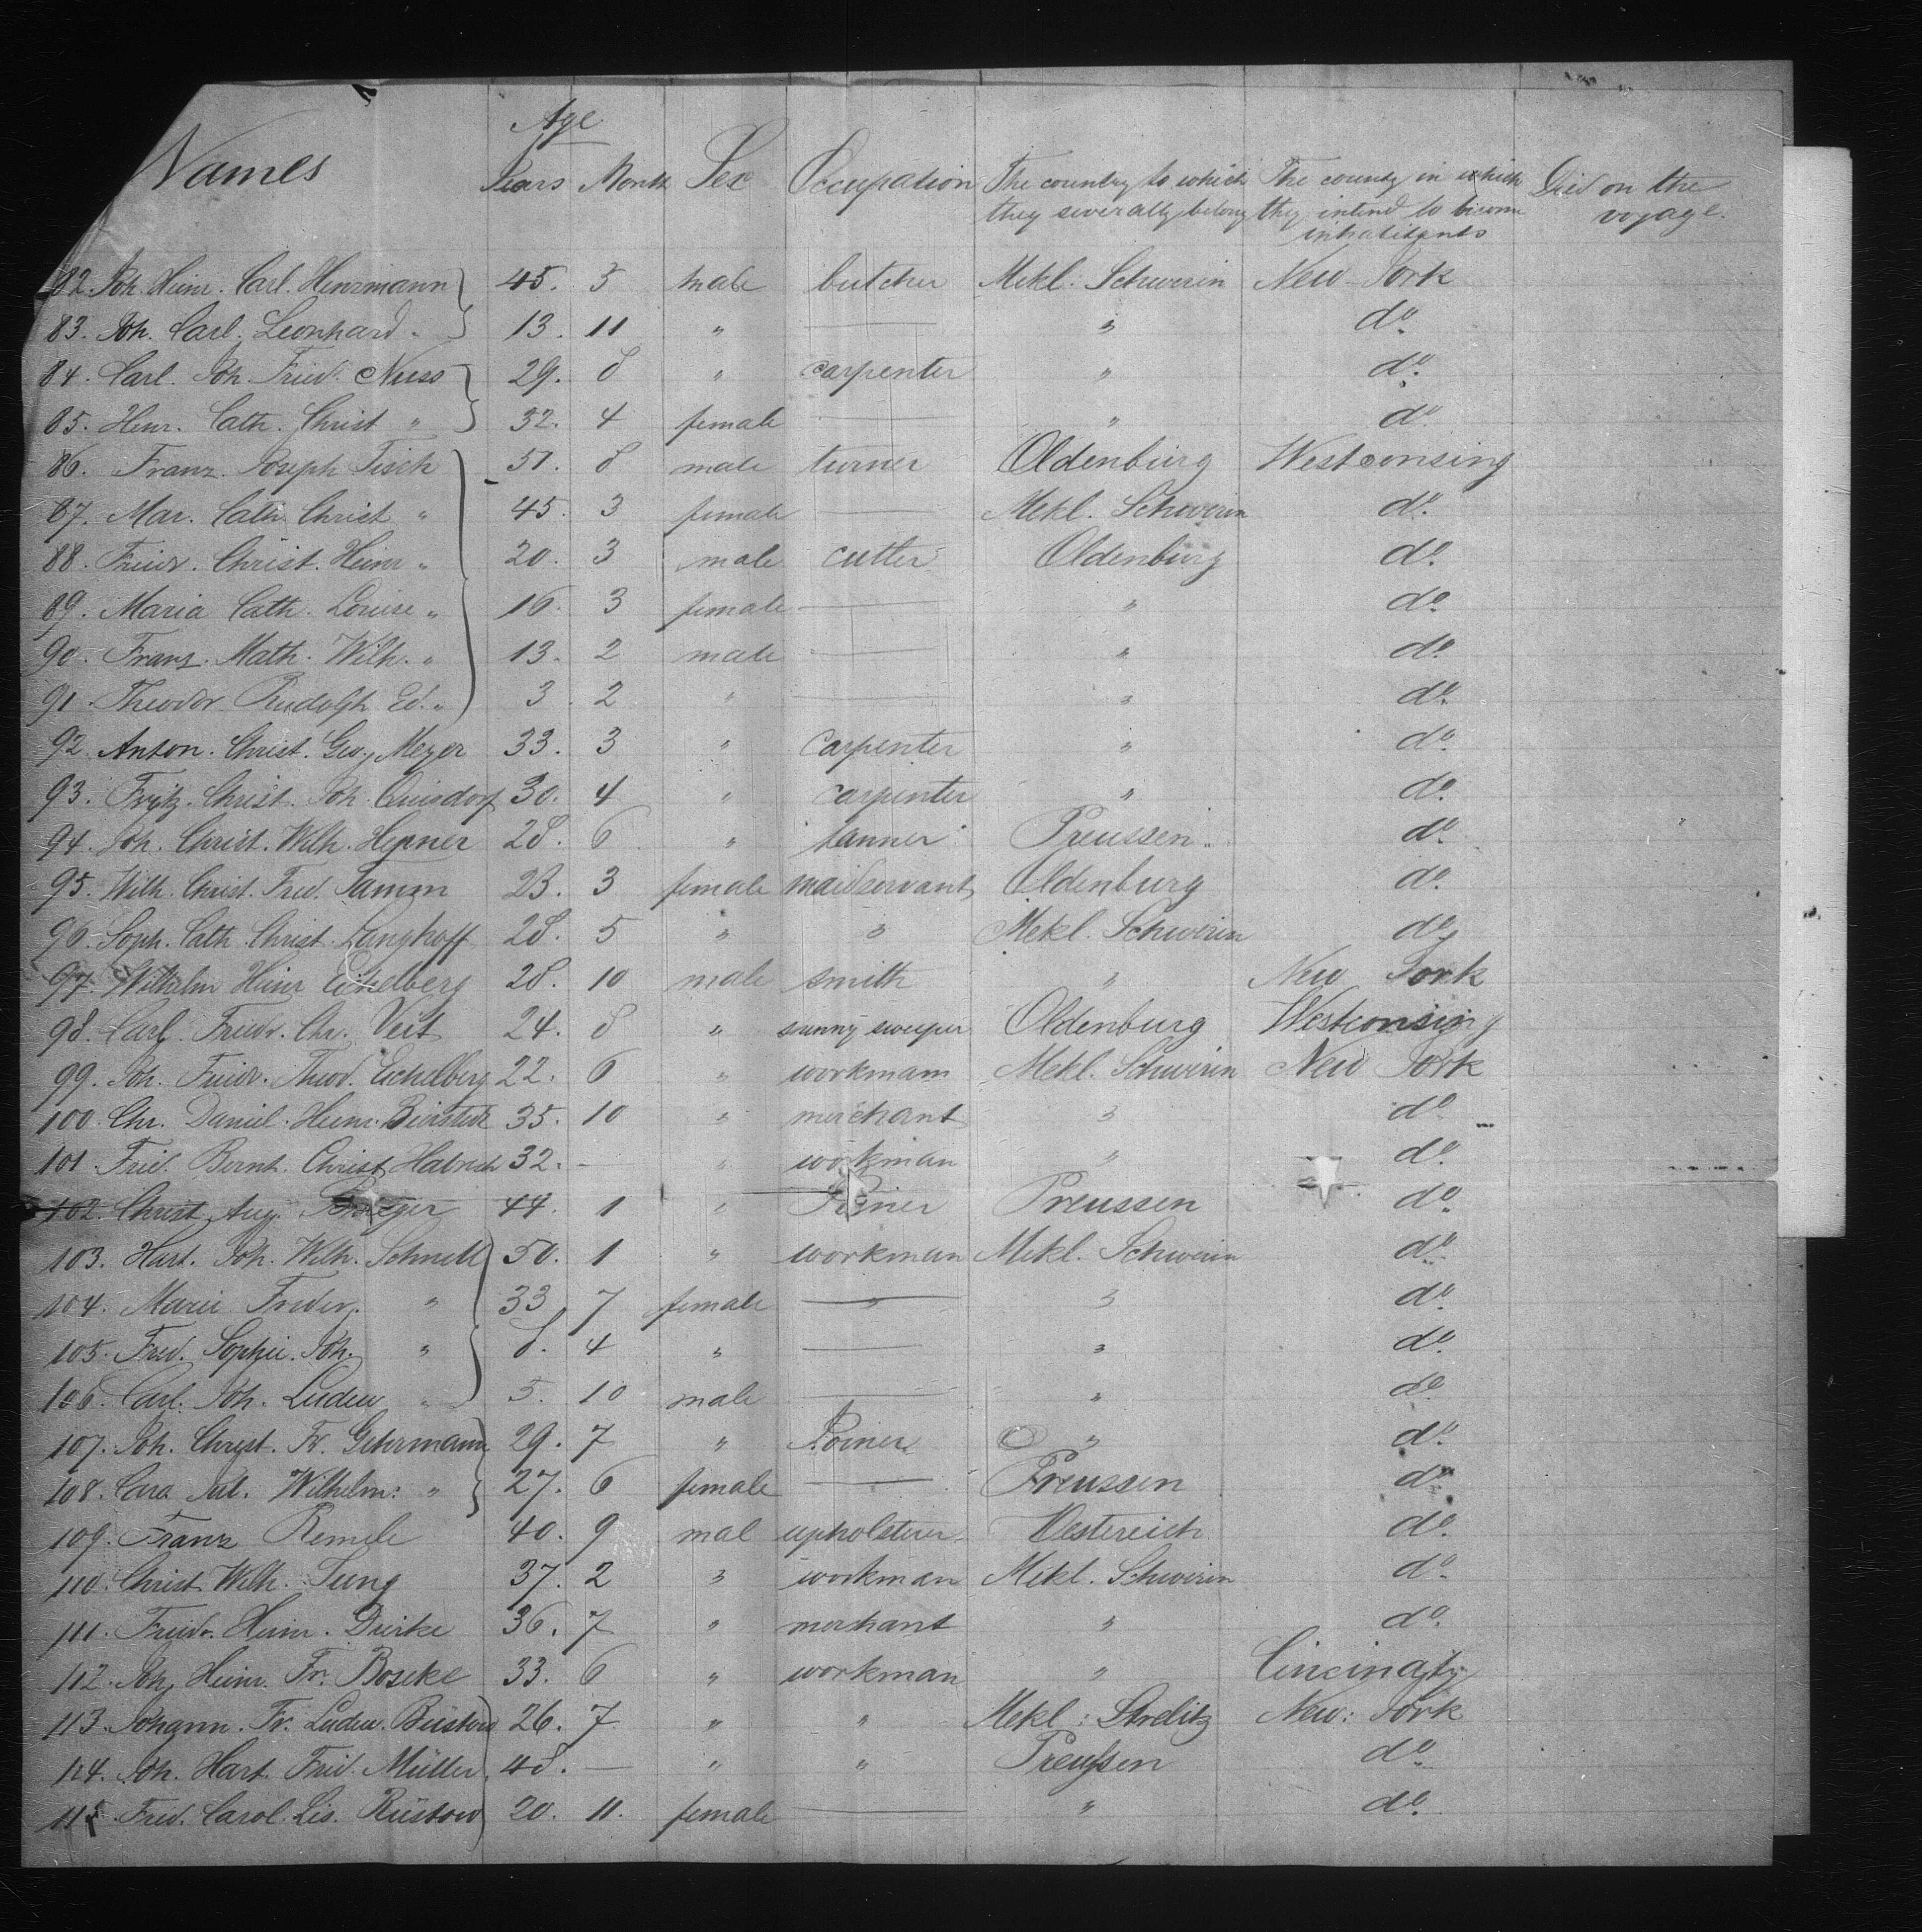 Age
Names Years Month Sex Occupation The country to which they severally belong The county in which they intend to become inhabitants Died on the voyage.
82. Joh. Heinr. Carl. Henzmann 45. 3 male butcher Mekl: Schwerin New-York
83. Joh. Carl. Leonhard " 13. 11 " — " do.
84. Carl. Joh. Fried. Nuss 29. 8 " carpenter " do.
85. Henr. Cath. Christ " 32. 4 female — " do.
86. Franz. Joseph Tisch 51. 8 male turner Oldenburg Westconsing
87. Mar. Cath. Christ " 45. 3 female — Mekl. Schwerin do.
88. Friedr. Christ. Heinr " 20. 3 male cutler Oldenburg do.
89. Maria Cath. Louise " 16. 3 female — " do.
90. Franz. Math. Wilh. " 13. 2 male — " do.
91. Theodor Rudolph Ed. " 3 2 " — " do.
92. Anton. Christ. Geo. Meyer 33. 3 " carpenter " do.
93. Fritz. Christ. Joh. 30. 4 " carpenter " do.
94. Joh. Christ. Wilh. Hepner 28. 6 " tanner Preussen do.
95. Wilh. Christ. Fred. Tamm 23. 3 female maidservant Oldenburg do.
96. Soph. Cath. Christ. Langhoff 28. 5 " " Mekl. Schwerin do.
97. Wilhelm Heinr Eickelberg 28. 10 male smith " New York
98. Carl. Friedr. Chr. Veit 24. 8 " sunny sweeper Oldenburg Westconsing
99. Joh. Friedr. Theod. Eichelberg 22. 6 " workmam Mekl. Schwerin New York
100. Chr. Daniel. Heinr. 35. 10 " merchant " do.
101. Fried. Bernh. Christ. 32. - " workman " do.
102. Christ. Aug. 44. 1 " Joiner Preussen do.
103. Hart. Joh. Wilh. Schnell 50. 1 " workman Mekl. Schwerin do.
104. Marie Freder. " 33. 7 female — " do.
105. Fred. Sophie. Joh. " 8. 4 " — " do.
106. Carl. Joh. Ludew " 5. 10 male — " do.
107. Joh. Christ. Fr. Gehrmann 29. 7 " Joiner " do.
108. Caro. Jul. Wilhelm: " 27. 6 female — Preussen do.
109. Franz Remele 40. 9 mal upholsterer Oestereich do.
110. Christ. Wilh. Jung 37. 2 " workman Mekl. Schwerin do.
111. Friedr. Heinr. 36. 7 " merchant " do.
112. Joh. Heinr. Fr. Boseke 33. 6 " workman " Cincinaty
113. Johann. Fr. Ludew. 26. 7 " " Mekl: Strelitz New: York
114. Joh. Hart. Fried. Müller 48. — " " Preußen do.
115 Fred. Carol. Lis. Rüstow 20. 11. female — " do.